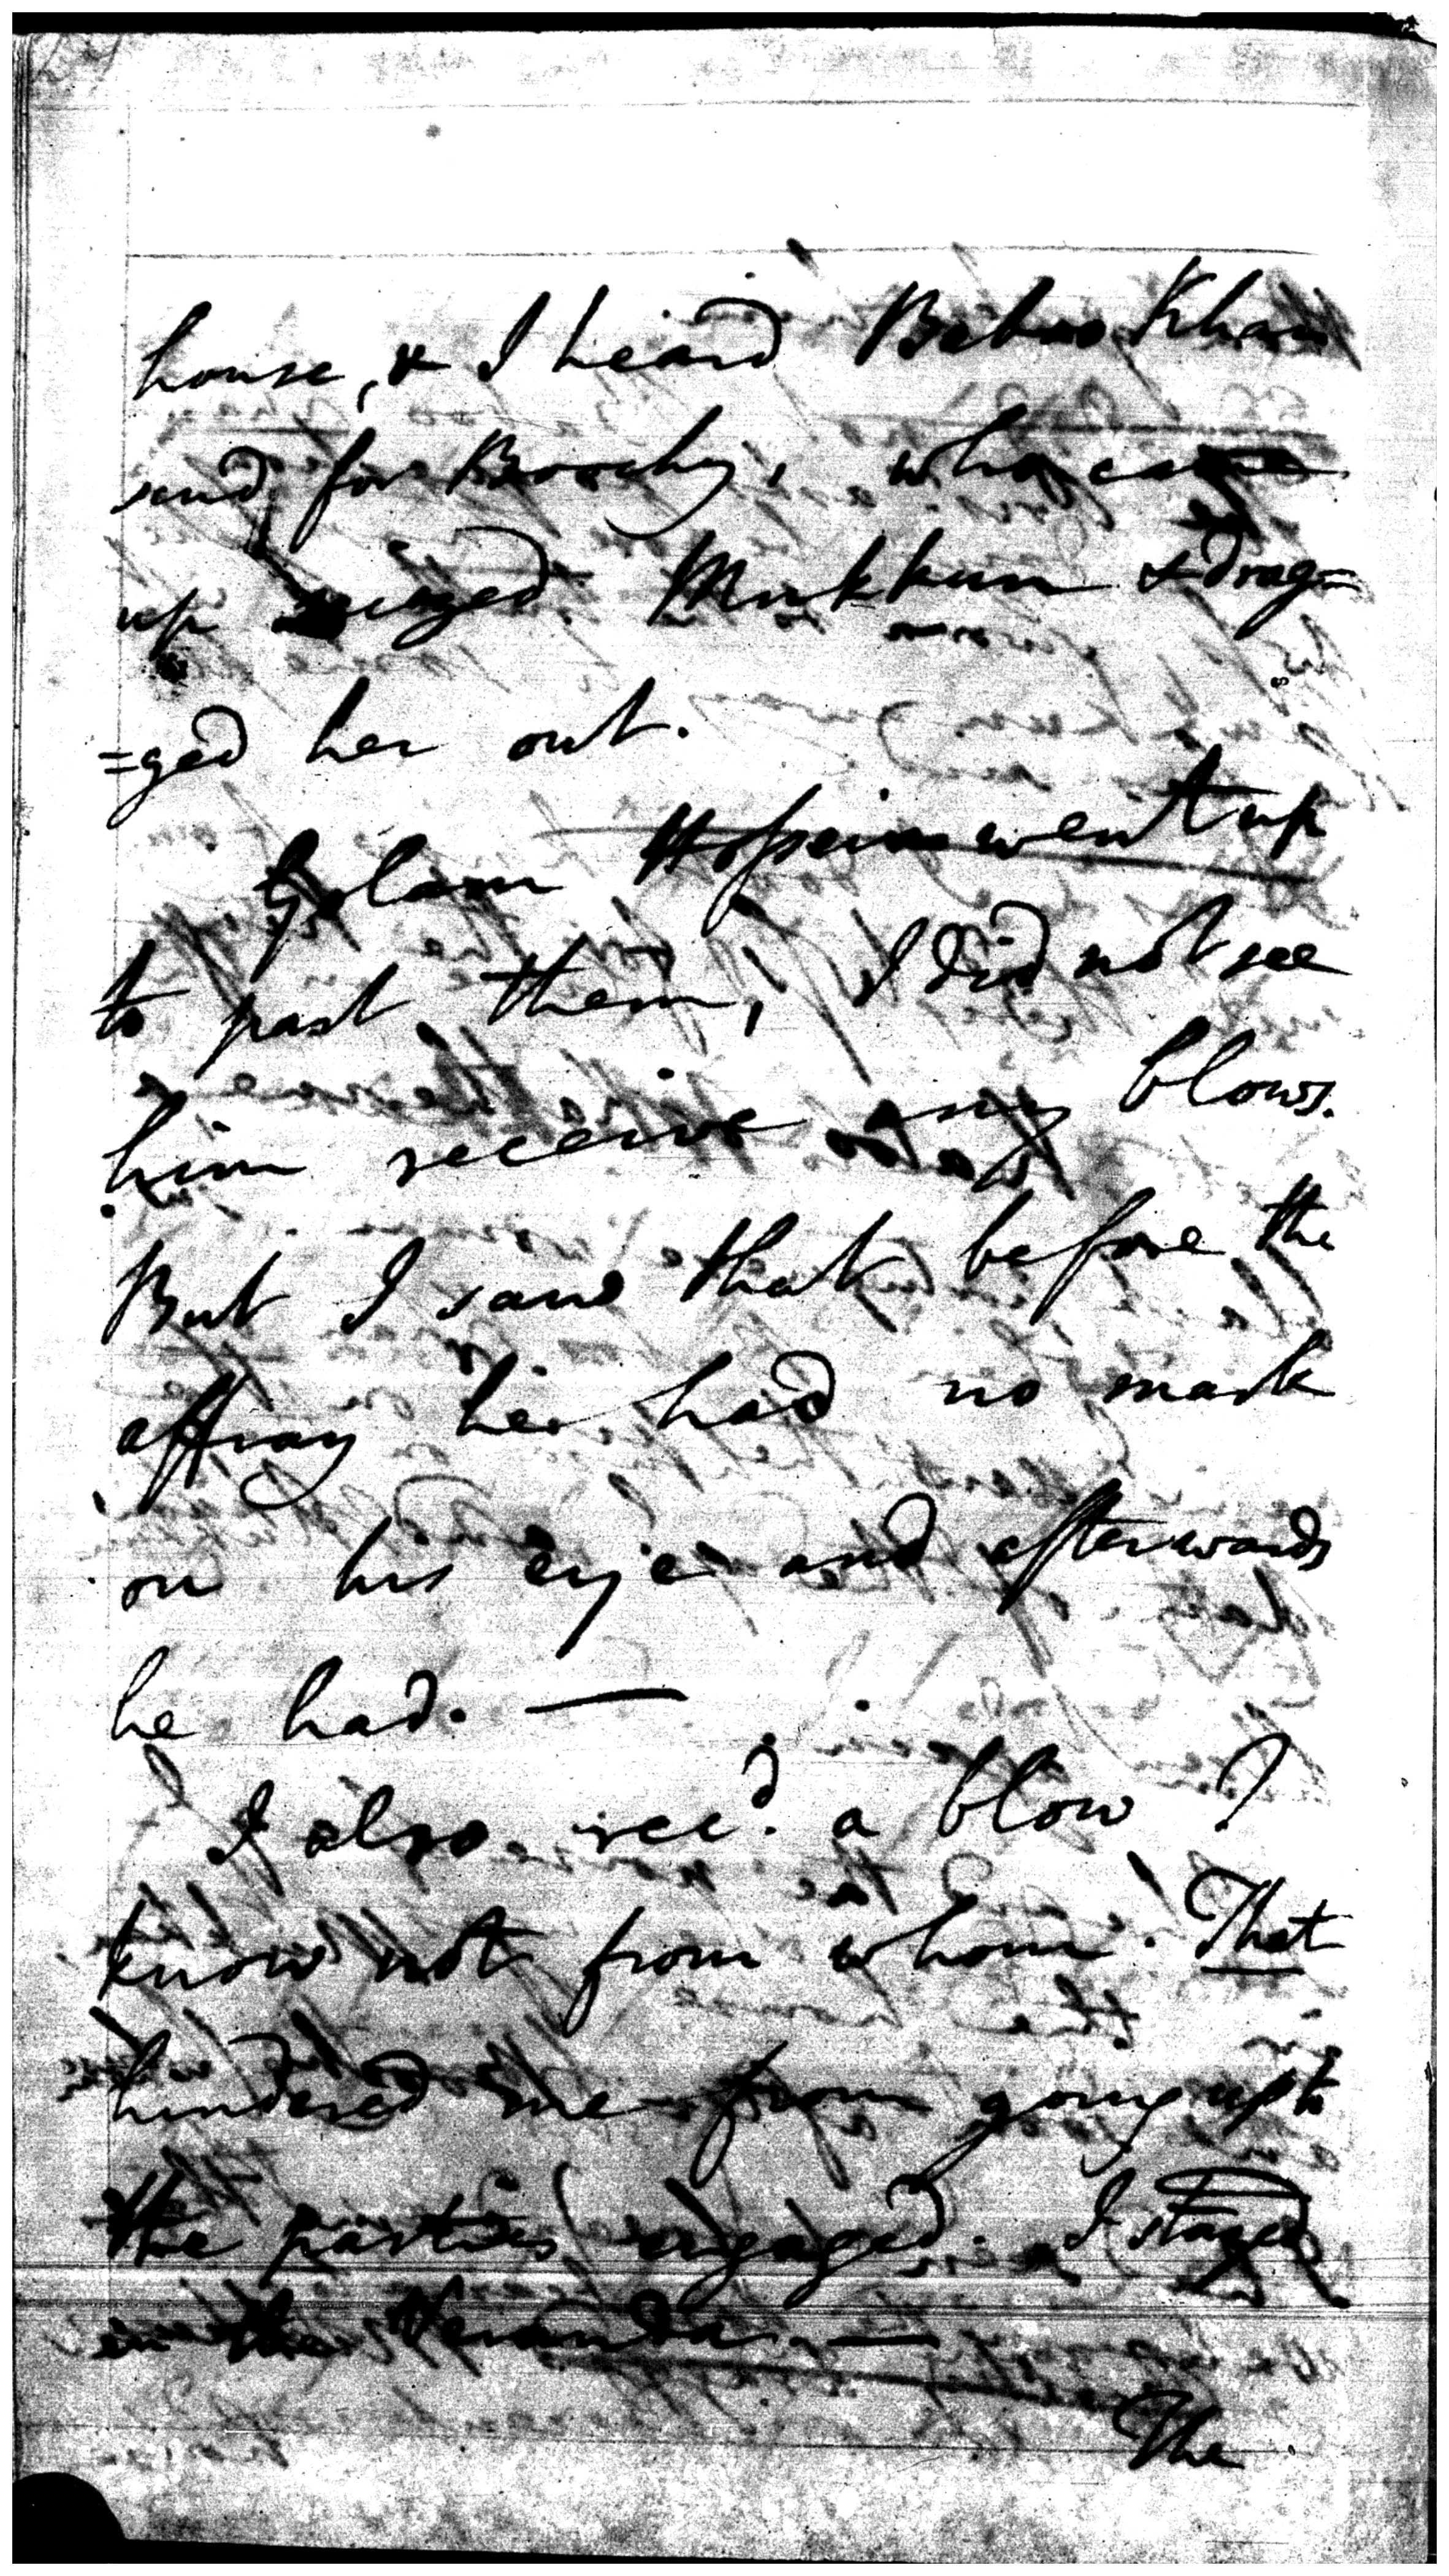 house, & I heard Baboo Khan
send for Broochy, who came
up seized Mukkun & drag=
=ged her out.
Golam Hossein went up
to part them, I did not see
him receive any blows.
But I saw that before the
affray he had no mark
on his eye and afterwards
he had. —
I also rec.d a blow I
know not from whom. That
hindered me from going up to
the parties engaged. I stayed
in the Veranda. —
The